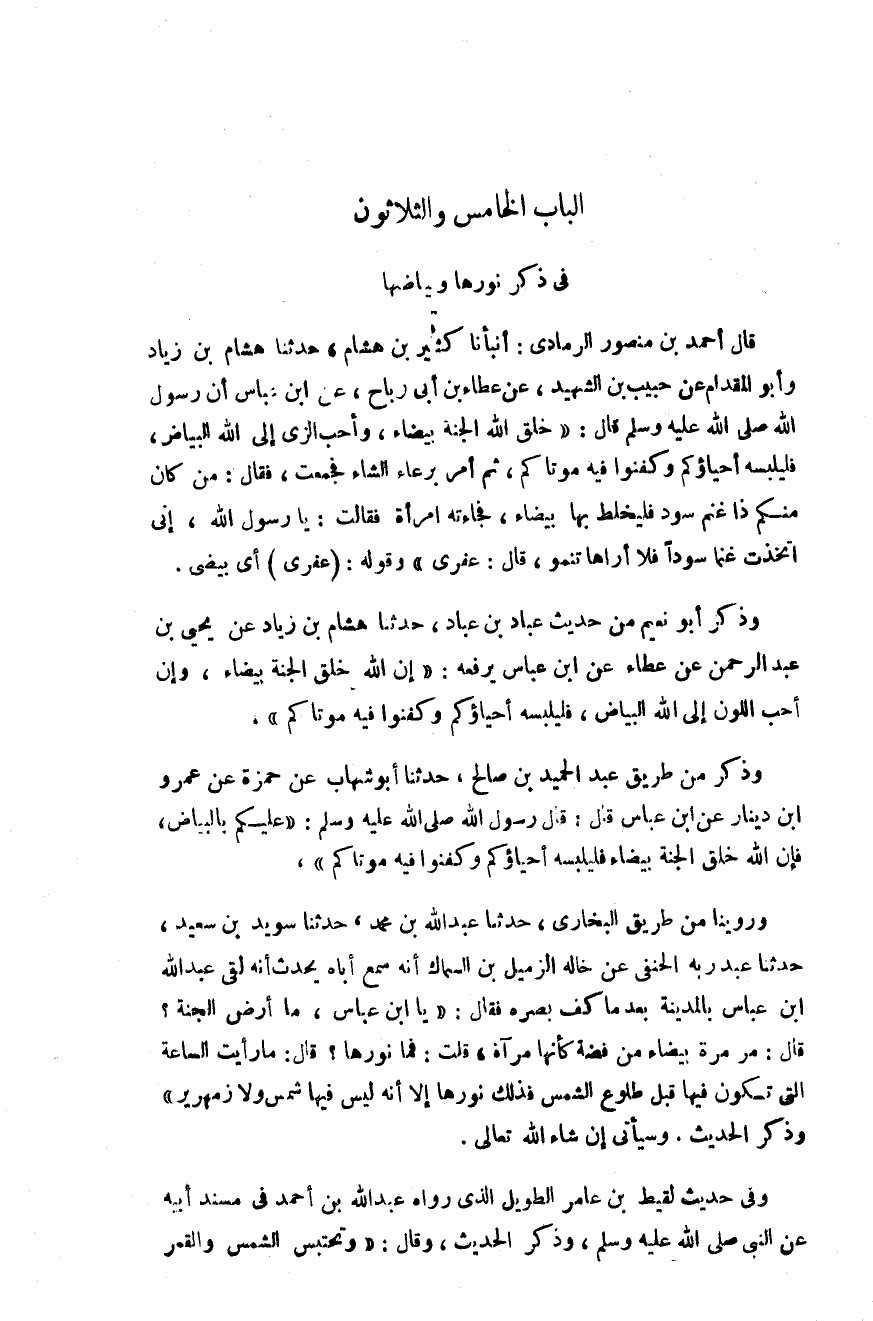 الباب الخامس والثلاثون
فى ذكر نورها وبياضها
قال أحمد بن منصور الرمادى : أنبأنا كثير بن هشام ، حدثنا هشام بن زياد
وأبو المقدام عن حبيب بن الشهيد ، عن عطاء بن أبى رباح ، عن ابن عباس أن رسول
الله صلى الله عليه وسلم قال : « خلق الله الجنة بيضاء ، وأحب الزى إلى الله البياض ،
فليلبسه أحياؤكم وكفنوا فيه موتاكم ، ثم أمر برعاء الشاء فجمعت ، فقال : من كان
منكم ذا غنم سود فليخلط بها بيضاء ، فجاءته امرأة فقالت : يا رسول الله ، إنى
اتخذت غنما سوداً فلا أراها تنمو ، قال : عفرى » وقوله : (عفرى) أى بيضى .
وذكر أبو نعيم من حديث عباد بن عباد ، حدثنا هشام بن زياد عن يحيى بن
عبد الرحمن عن عطاء عن ابن عباس يرفعه : « إن الله خلق الجنة بيضاء ، وإن
أحب اللون إلى الله البياض ، فليلبسه أحياؤكم وكفنوا فيه موتاكم » .
وذكر من طريق عبد الحميد بن صالح ، حدثنا أبو شهاب عن حمزة عن عمرو
ابن دينار عن ابن عباس قال : قال رسول الله صلى الله عليه وسلم : «عليكم بالبياض،
فإن الله خلق الجنة بيضاء فليلبسه أحياؤكم وكفنوا فيه موتاكم » ،
وروينا من طريق البخارى ، حدثنا عبدالله بن محمد ، حدثنا سويد بن سعيد ،
حدثنا عبد ربه الحنفى عن خاله الزميل بن السماك أنه سمع أباه يحدث أنه لقى عبدالله
ابن عباس بالمدينة بعد ما كف بصره فقال : « يا ابن عباس ، ما أرض الجنة ؟
قال : مر مرة بيضاء من فضة كأنها مرآة ، قلت : فما نورها ؟ قال : ما رأيت الساعة
التى تكون فيها قبل طلوع الشمس فذلك نورها إلا أنه ليس فيها شمس ولا زمهرير »
وذكر الحديث . وسيأتى إن شاء الله تعالى .
وفى حديث لقيط بن عامر الطويل الذى رواه عبدالله بن أحمد فى مسند أبيه
عن النبى صلى الله عليه وسلم ، وذكر الحديث ، وقال : « وتحتبس الشمس والقمر